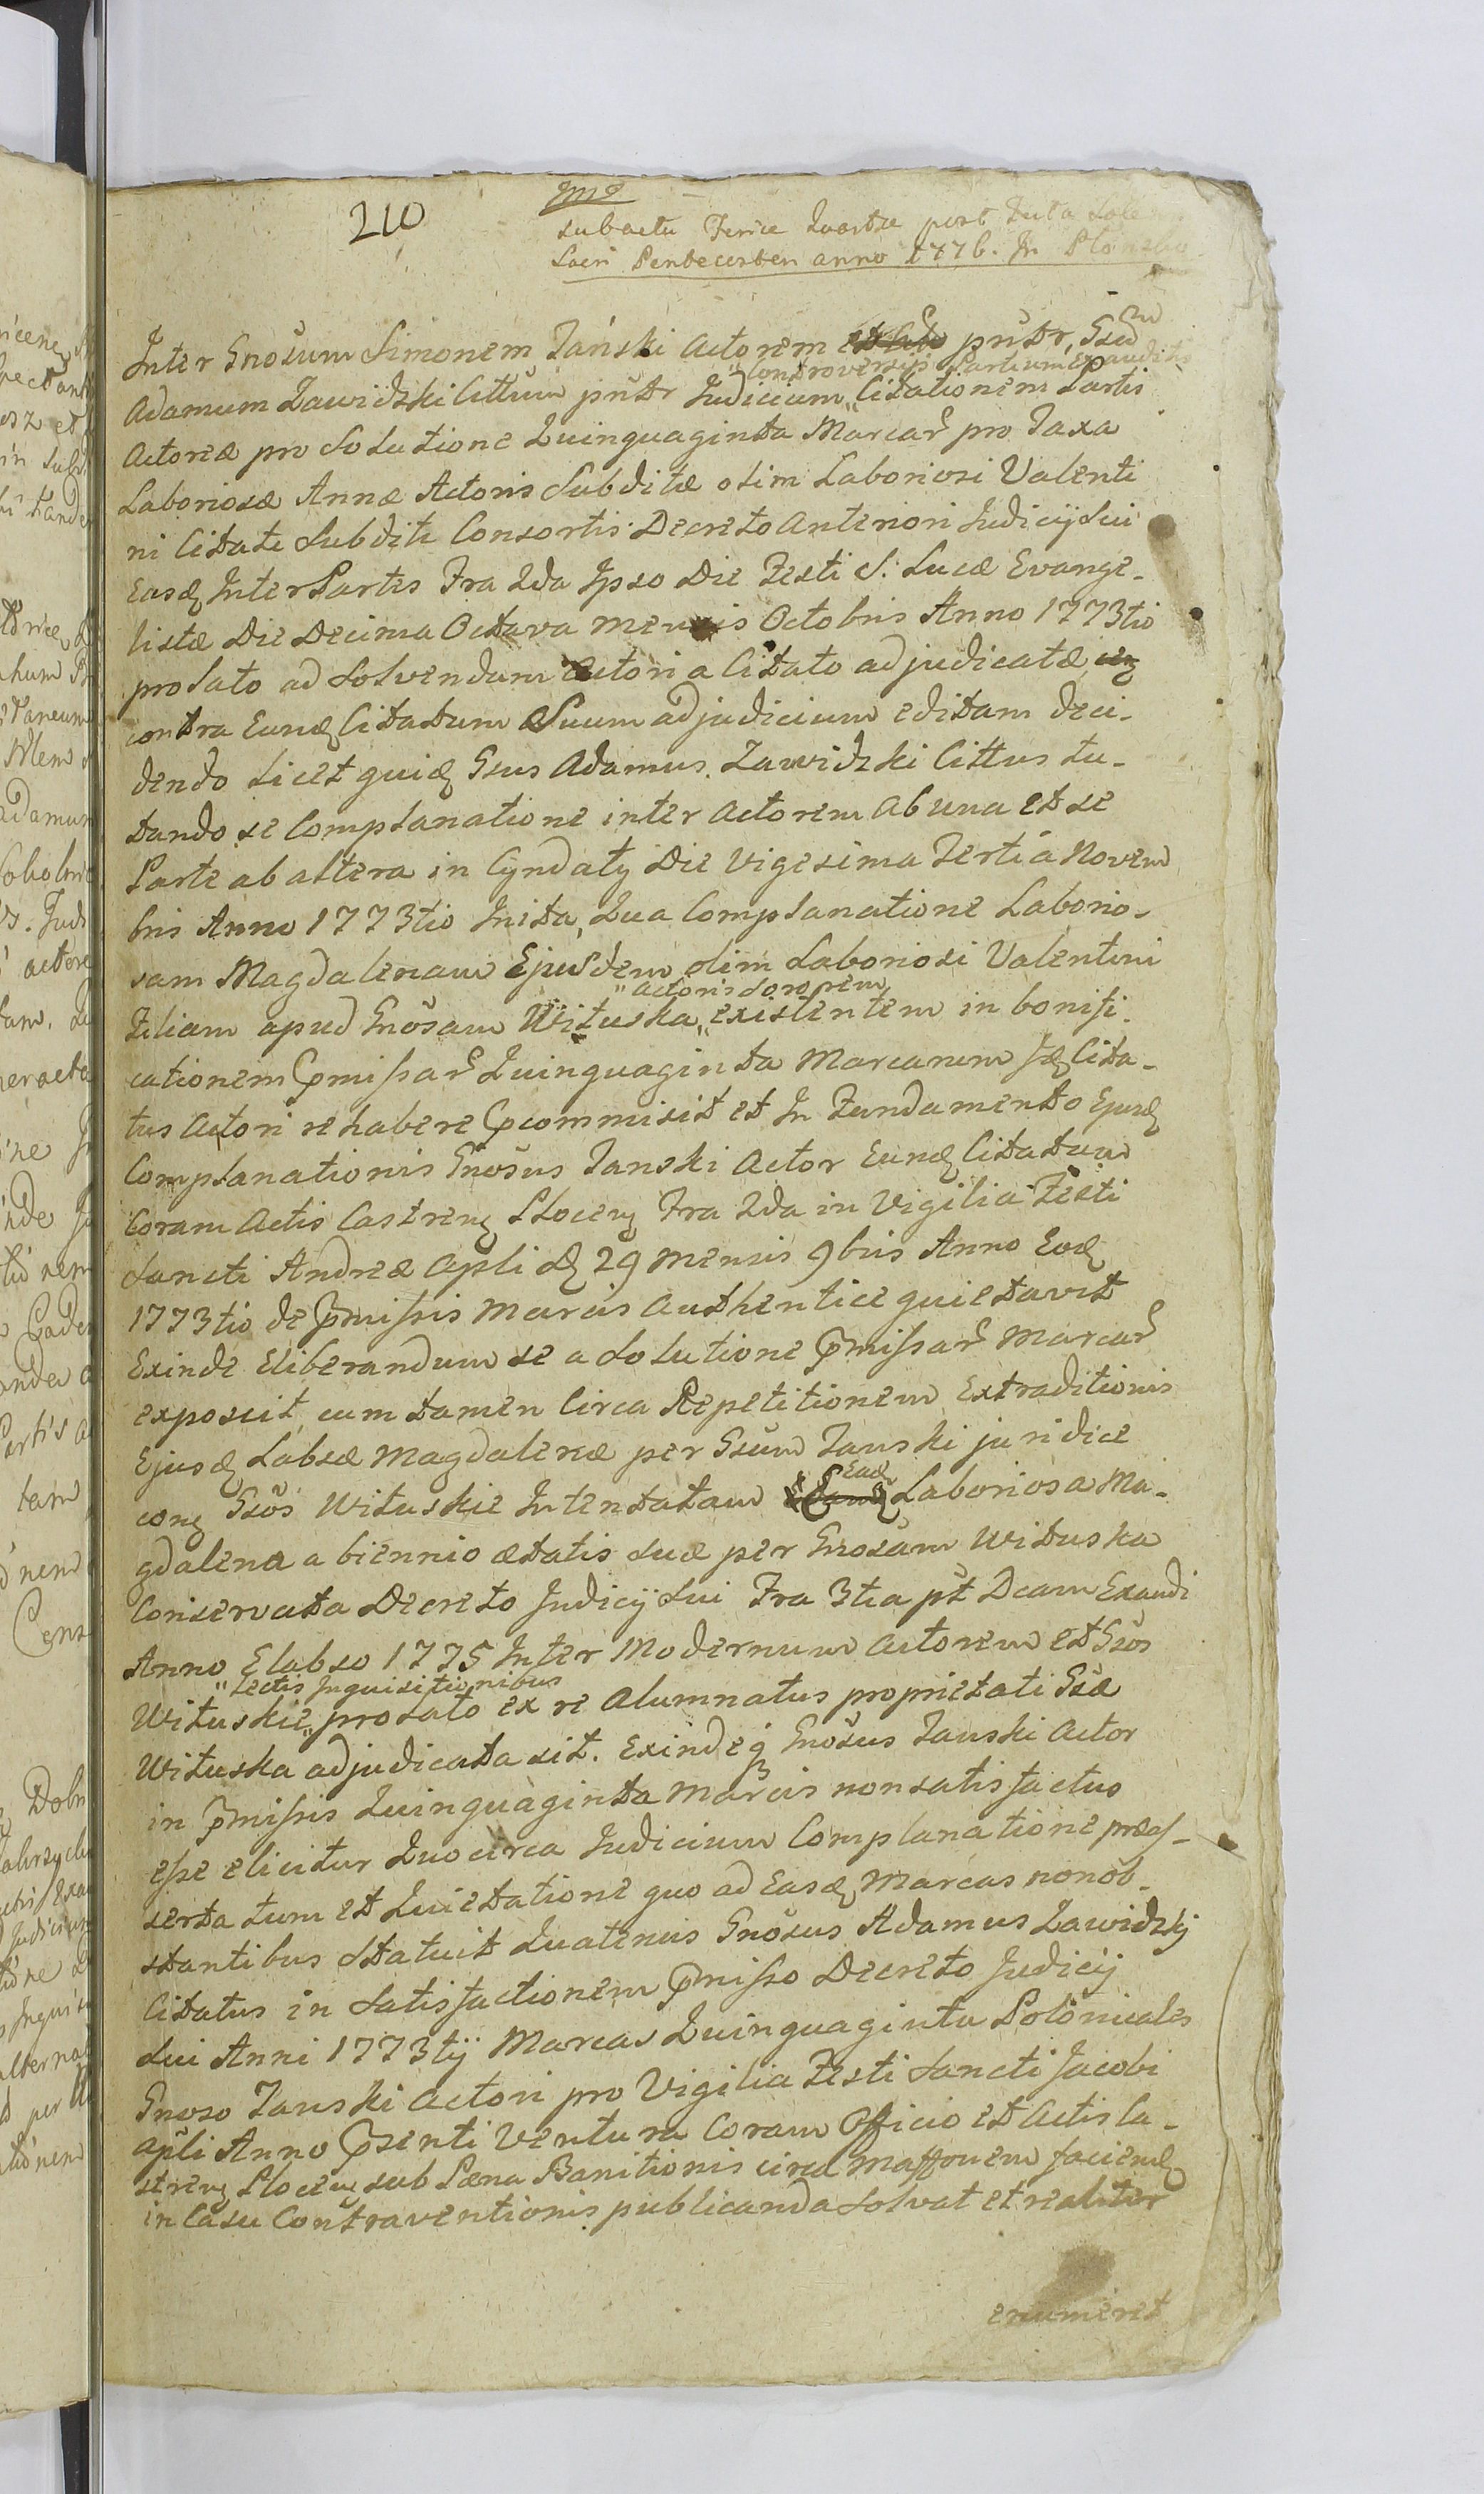 210
sub actu Feriæ Quartæ post Festa Sole
Sacri Pentecosten anno 1776. In Płonsko
Inter Gnosum Simonem Janski Actorem pnstr, Gsūm
Controversijs Partium Exauditis
Adamum Zawidzki Cittum pnstr Judicium Citationem Partis
Actoreæ pro Solutione Quinquaginta Marcar pro Taxa
Laboriosæ Annæ Actoris Subditæ olim Laboriosi Valenti
ni Citate Subditi Consortis Decreto Anteriori Judicij Sui
Easq Inter Partes Fra 2da Ipso Die Festi S. Lucæ Evange-
listæ Die Decima Octava mensis Octobris Anno 1773tio
prolato ad Solvendum Actori a Citato adjudicatæ
contra Eunq Citatum Suum ad judicium editam deci-
dendo licet quiq Gsus Adamus Zawidzki Cittus tu-
tando se Complanatione inter Actorem ab una et se
Parte ab altera in Cyndaty Die Vigesima Tertiá Novem
bris Anno 1773tio Inita, Qua Complanatione Laborio-
sam Magdalenam Ejusdem olim Laboriosi Valentini
Actoris Sororem
Filiam apud Gnosam Wituska existentem in bonifi-
cationem pmissar Quinquaginta Marcarum Jq Cita-
tus Actori rehabere pcommisit et In Fundamento Ejusq
Complanationis Gnosus Janski Actor Eunq Citatum
Coram Actis Castrenq Plocenq Fra 2da in Vigilia Festi
Sancti Andreæ Apli dq 29 Mensis 9bris Anno Eoq
1773tio de pmissis Marcis Authentice quietavit
Exinde Eliberandum se a Solutione pmissar Marcar
exposcit, cum tamen Circa Repetitionem Extraditionis
Ejusq Labsæ Magdalenæ per Gsum Janski juridice
conq Gsos Wituskie Intentatam Eaq Laboriosa Ma-
gdalena a biennio ætatis suæ per Gnosam Wituska
Conservata Decreto Judicij Sui Fra 3tia pt Dcam Exaudi
Anno Elabso 1775 Inter Modernum Actorem et Gsos
Lectis Inquisitionibus
Wituskie prolato ex re Alumnatus proprietati Gsæ
Wituska adjudicata sit. Exindeq Gnosus Janski Actor
in pmissis Quinquaginta Marcis non satisfactus
esse elicitur Quocirca Judicium Complanatione præas-
serta tum et Quietatione quo ad Easq Marcas nonob-
stantibus Statuit Quatenus Gnosus Adamus Zawidzkj
Citatus in Satisfactionem pmisso Decreto Judicij
Sui Anni 1773tij Marcas Quinquaginta Polonicales
Gnoso Janski Actori pro Vigilia Festi Sancti Jacobi
Apli Anno psenti Ventura Coram Officio et Actis Ca-
strenq Plocenq sub Pæna Banitionis circa faciendq
in Casu Contraventionis publicanda Solvat et realiter
enumeret